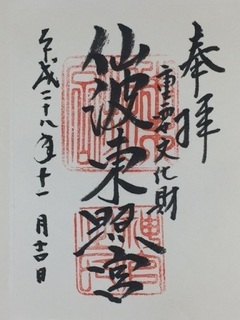 奉拝
重要文化財
仙波東照宮
平成二十八年十一月十四日